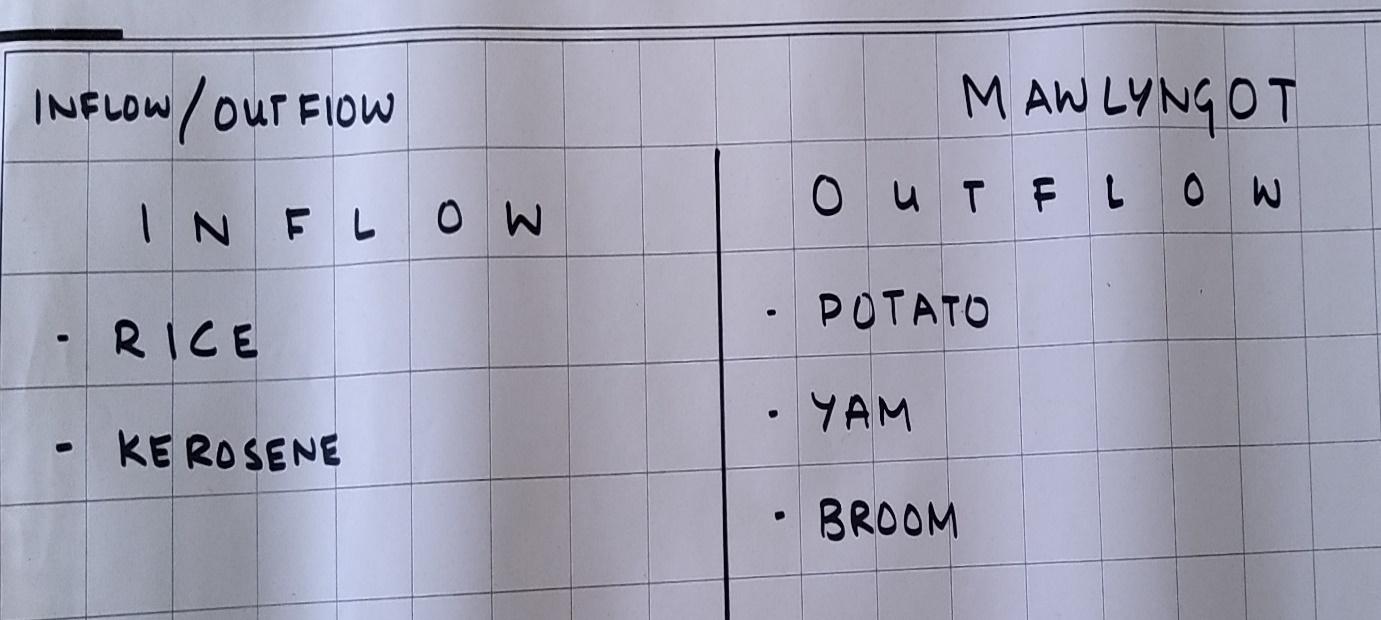 INFLOW/OUTFLOW
MAWLYNGOT
INFLOW
- RICE
- KEROSENE
OUTFLOW
· POTATO
· YAM
· BROOM